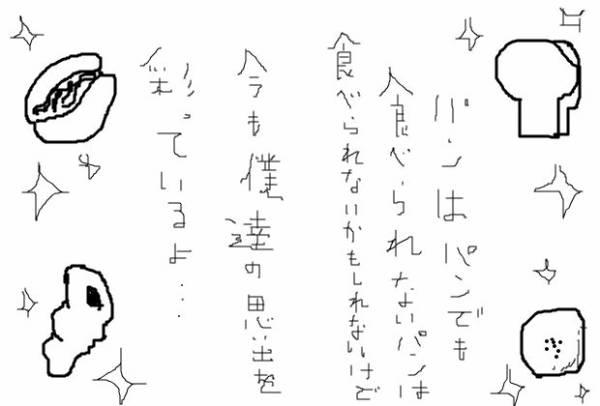 パンはパンでも
食べられないパンは
食べられないかもしれないけど
今も僕達の思い出を
彩っているよ…